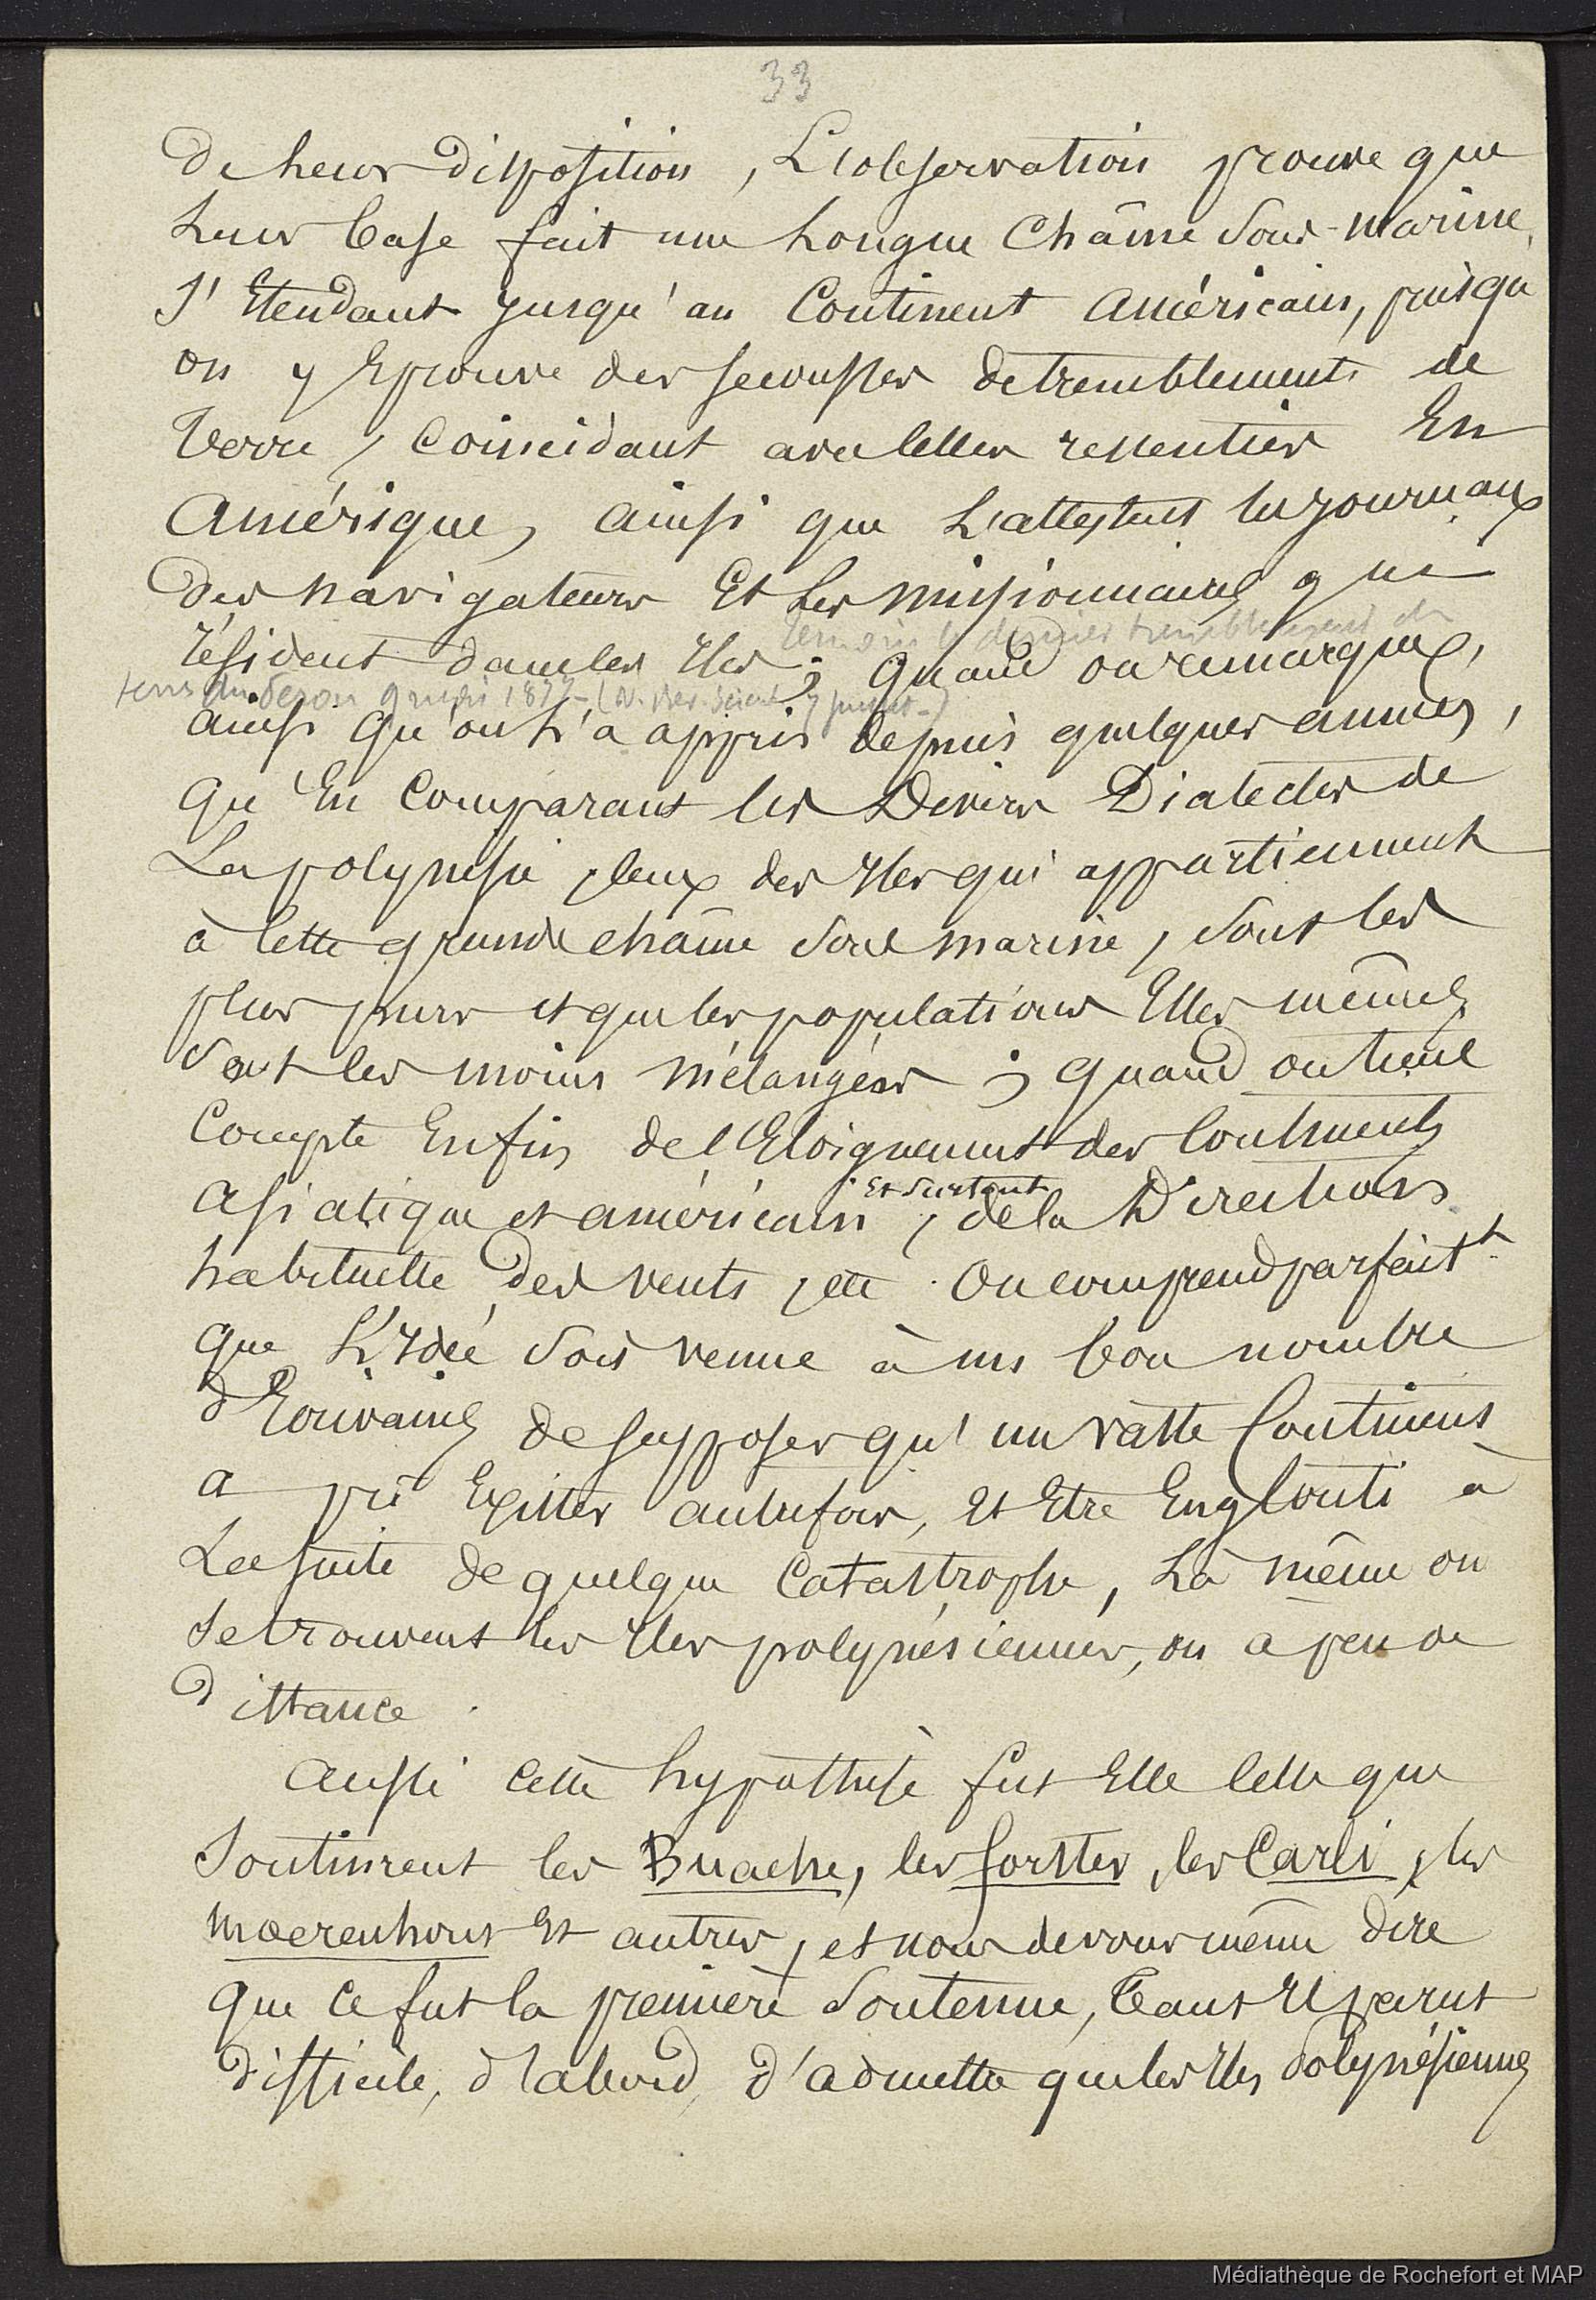 33
de leur disposition, L'observation prouve que
leur base fait une longue Chaîne sous-marine,
s'Etendant jusqu'au Continent américain, puisqu
on y Eprouve des secousses de tremblements de
terre, coincidant avec celles ressenties En
Amérique, ainsi que L'attestent les journaux
des navigateurs Et les missionnaires qui
témoin le dernier tremblement de
résident dans les Iles ; quand on remarque,
terre du Pérou 1877
ainsi qu'on l'a appris depuis quelques années,
qu'En comparant les Divers Dialectes de
La polynésie, ceux des Iles qui appartiennent
à cette grande chaîne sous marine, sont les
plus purs et que les populations Elles mêmes
sont les moins mélangées ; quand on tient
Compte Enfin de l'Eloignement des Continents
asiatique et américain, et surtout de la Direction
habituelle des vents, etc. On comprend parfaitt.
que L'Idée soit venue à un bon nombre
d'Ecrivains de supposer qu'un vaste Continent
a pû Exister autrefois, Et Etre Englouti à
La suite de quelque Catastrophe, Là même ou
se trouvent les Iles polynésiennes, ou a peu de
distance.
Aussi cette hypothèse fut Elle celle que
soutinrent les Buache, les forster, les Carli, les
Moerenhout Et autres, et nous devons même dire
que ce fut la première soutenue, Tant Il parut
difficile, d'abord, d'admettre que les Iles polynésiennes
Médiathèque de Rochefort et MAP